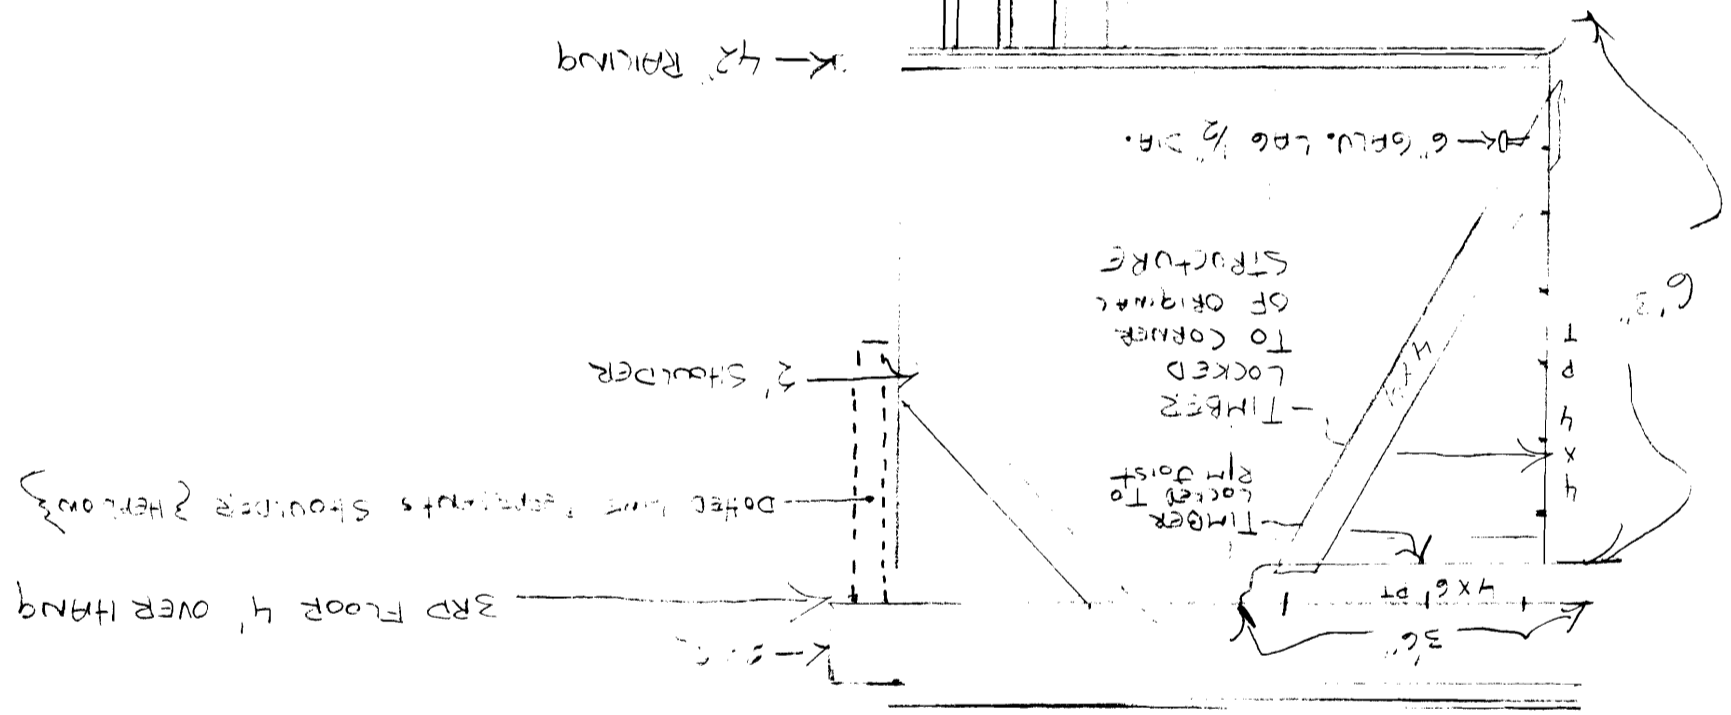 3'6"
4 X 6 PT
3RD FLOOR 4' OVER HANG
TIMBER
LOCKED TO
RIM JOIST
DOTTED LINE REPRESENTS SHOULDER
4
X
4
P
T
TIMBER
LOCKED
TO CORNER
OF ORIGINAL
STRUCTURE
2' SHOULDER
6'3"
6" GALV. LAG 1/2" DIA.
42" RAILING